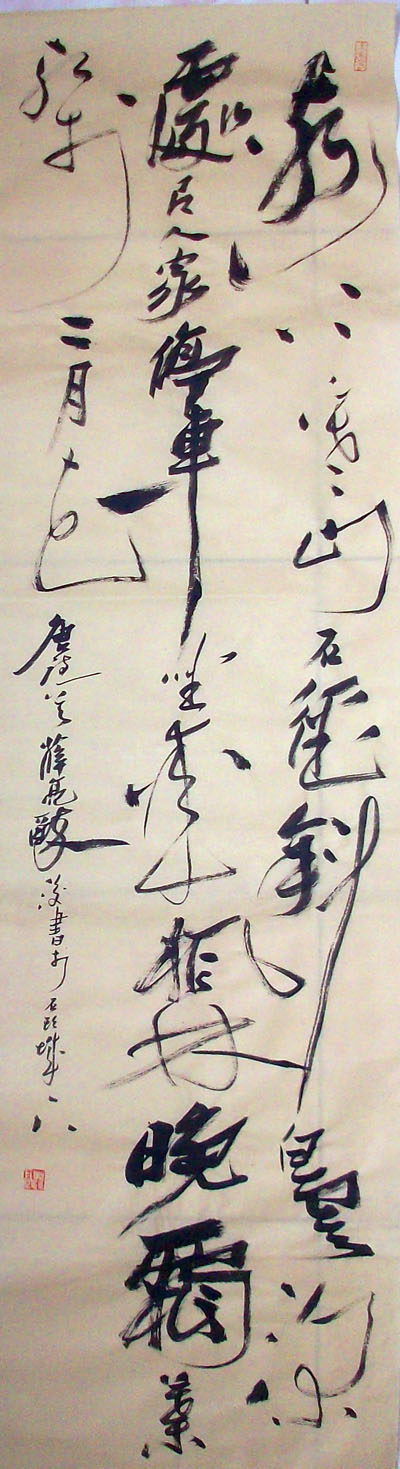 遠上寒山石徑斜白雲深
處有人家停車坐愛楓林晚霜葉
紅於二月花
唐詩一首薛亮醉後書於石頭城下